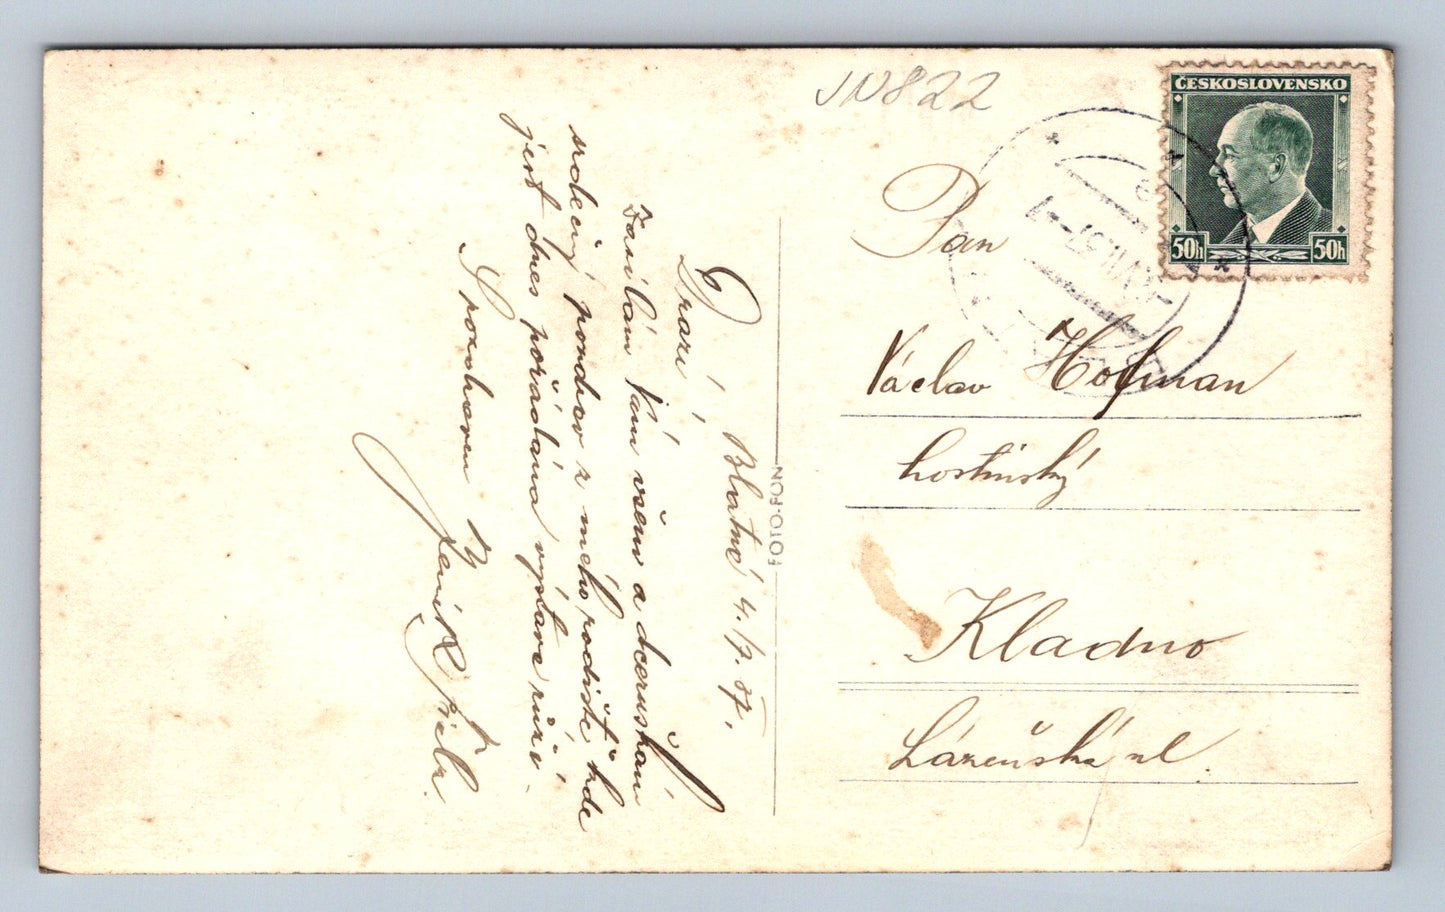 JN822
ČESKOSLOVENSKO
50h 50h
Pan
Václav Hofman
hostinský
Kladno
Lázeňská ul.
FOTO-FON
Blatná 4./7. 37.
Drazí!
Zasílám Vám všem a dceruškám
srdečný pozdrav z mého rodiště, kde
jest dnes pořádána výstava růží.
S pozdravem